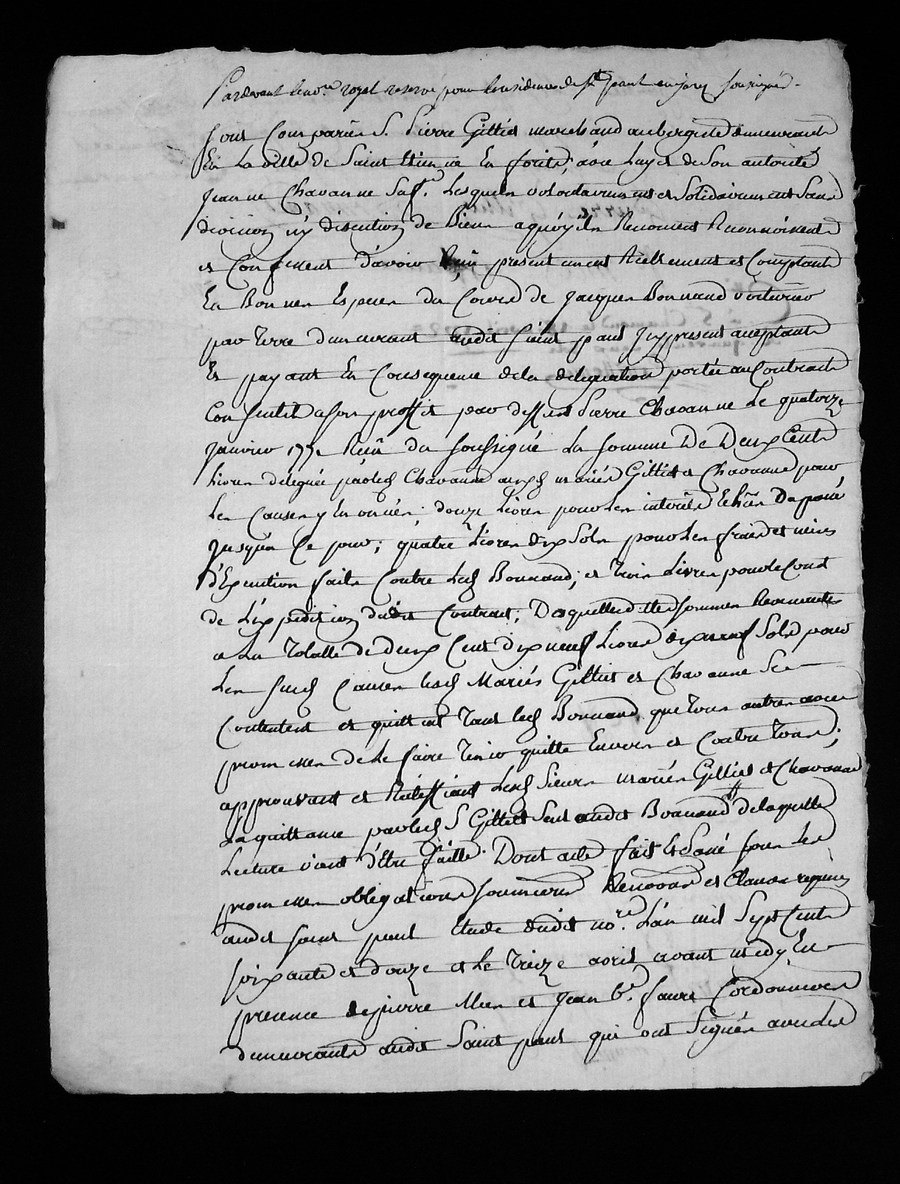 Pardevant le no.re royal reservé pour la residence de St paul en jarez soussigné.
sont Comparus S. Pierre Gilliet marchand aubergiste demeurant
En La ville de Saint Etienne En forêts, avec Luy et de son autorité
Jeanne Chavanne Sa fe. Lesquels volontairement et Solidairement Sans
division ny discution de Biens a quoy ils Renoncent Reconnoissent
et Confessent d'avoir Reçu presentement Reellement et Comptant
En Bonnes Especes du Cours de Jacques Bonnand voiturier
par terre demeurant audit Saint paul Icy present acceptant
Et payant En Consequence de la delegation portée au Contrat
Consentit a son proffit par deffunt Pierre Chavanne Le quatorze
janvier 177 Reçu du soussigné La somme De Deux Cents
Livres deleguée par led. Chavanne auxd. mariés Gilliet et Chavanne pour
Les Causes y Enoncées; douze Livres pour les interêts Echus Depuis
Jusqu'à Ce jour; quatre Livres dix Sols pour Les frais et mises
d'Execution faits Contre Led. Bonnand; et trois Livres pour le Cout
de L'expedition dudit Contrat; Desquelles dittes sommes Revenantes
a La Totalle de Deux Cent dix neuf Livres dix neuf Sols pour
Les susd. Causes lesd. Mariés Gilliet et Chavanne Se
Contentent et quittent tant led. Bonnand que tous autres avec
promesse de Le faire Tenir quitte Envers et Contre tous;
approuvant et Ratiffiant Lesd. Sieurs mariés Gilliet et Chavanne
La quittance par led. S Gilliet seul audit Bonnand de laquelle
Lecture vient d'être faitte. Dont acte fait et passé sous Les
promesses obligations soumissions Renonciations et Clauses requises
audit saint paul Etude dudit no.re L'an mil Sept Cent
soixante et douze et Le Treize avril avant midy En
presence de pierre et Jean Bt. faure Cordonniers
demeurants audit Saint paul qui ont Signés avec led.